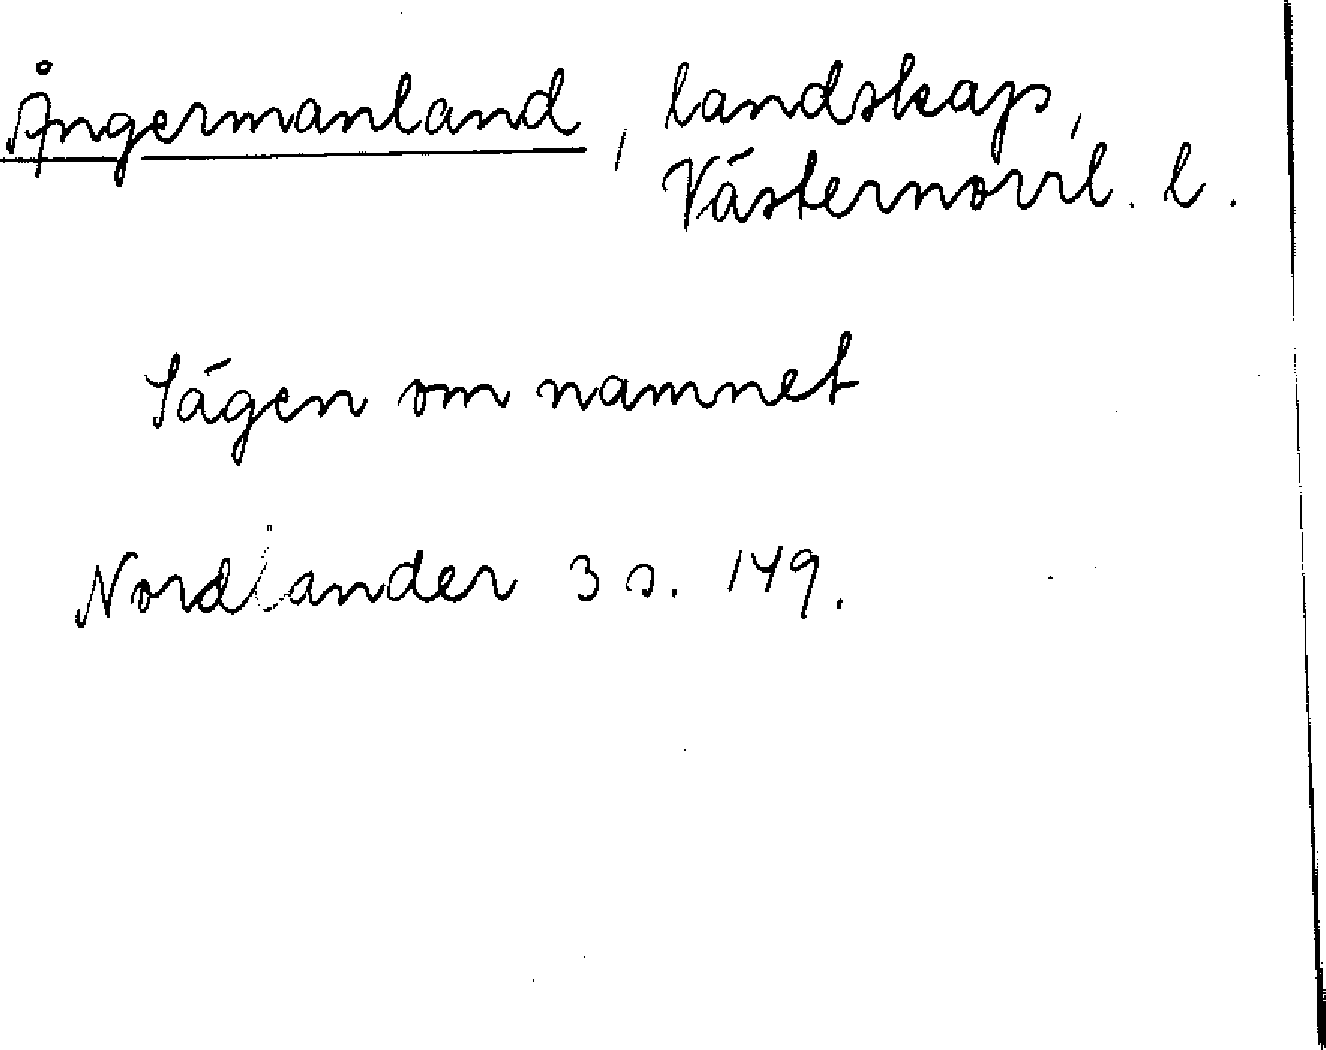 Ångermanland, landskap,
Västernorrl. l.
Sägen om namnet
Nordlander 3 s. 149.